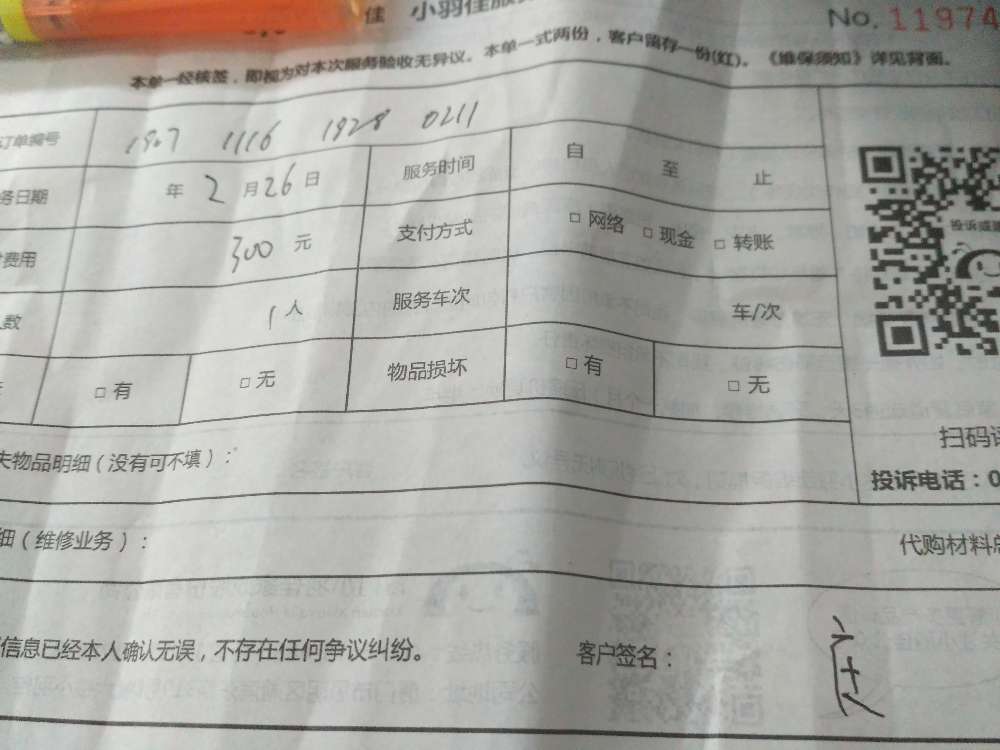 佳 小羽佳服
No. 11974
本单一经核签，即视为对本次服务验收无异议。本单一式两份，客户留存一份(红)。《维保须知》详见背面。
订单编号 1907 1116 1928 0211
务日期 年 2 月 26 日 服务时间 自 至 止
费用 300 元 支付方式 □ 网络 □ 现金 □ 转账
数 1 人 服务车次 车/次
□ 有 □ 无 物品损坏 □ 有 □ 无
失物品明细（没有可不填）：
扫码
投诉电话：0
细（维修业务）： 代购材料总
信息已经本人确认无误，不存在任何争议纠纷。 客户签名：